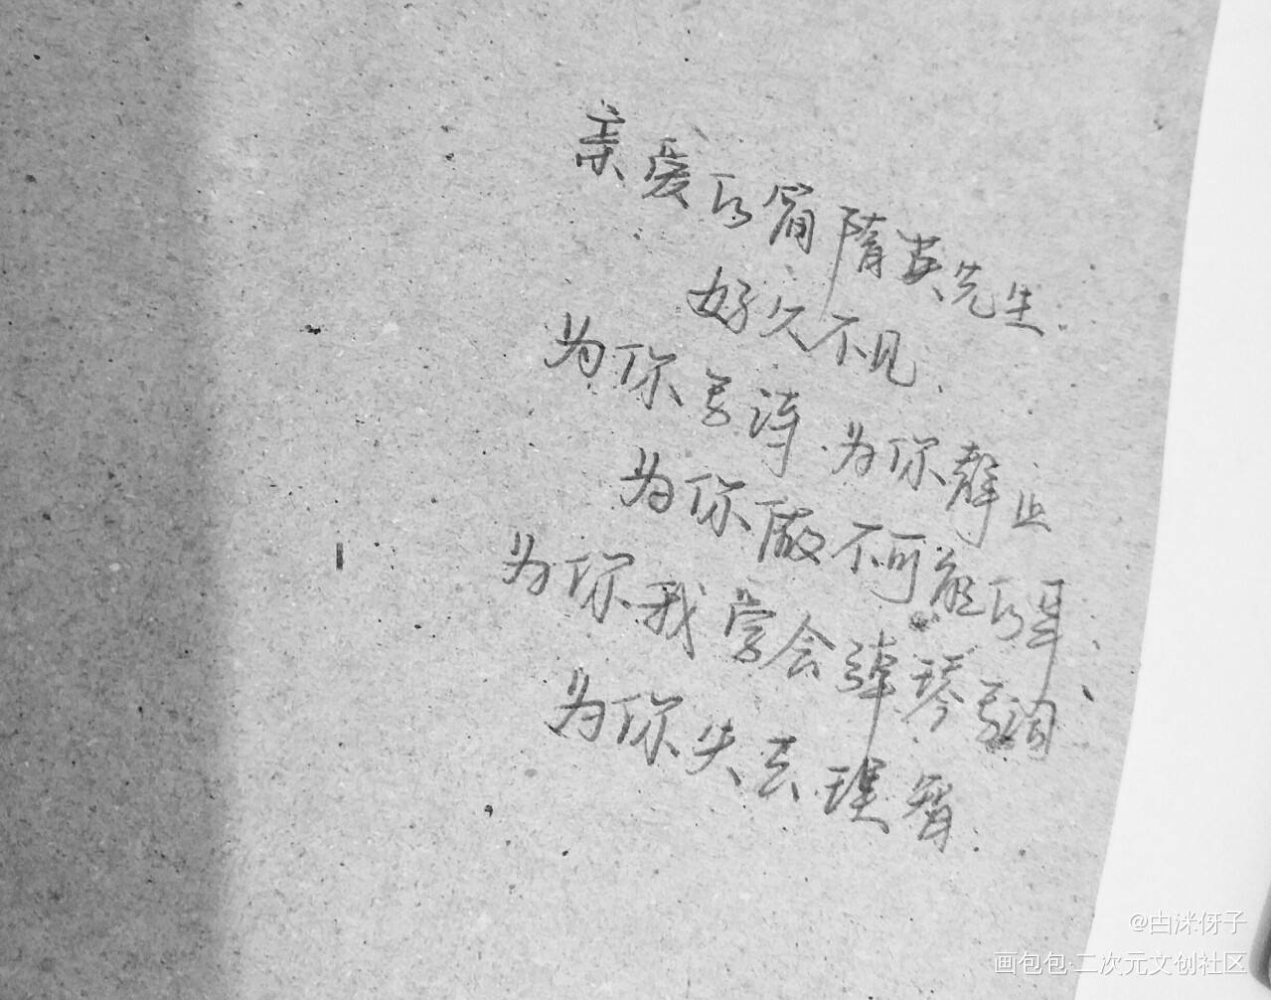 亲爱的简隋英先生.
好久不见.
为你写诗.为你静止
为你做不可能的事、
为你我学会弹琴写词
为你失去理智.
@由洣伢子
画包包·二次元文创社区